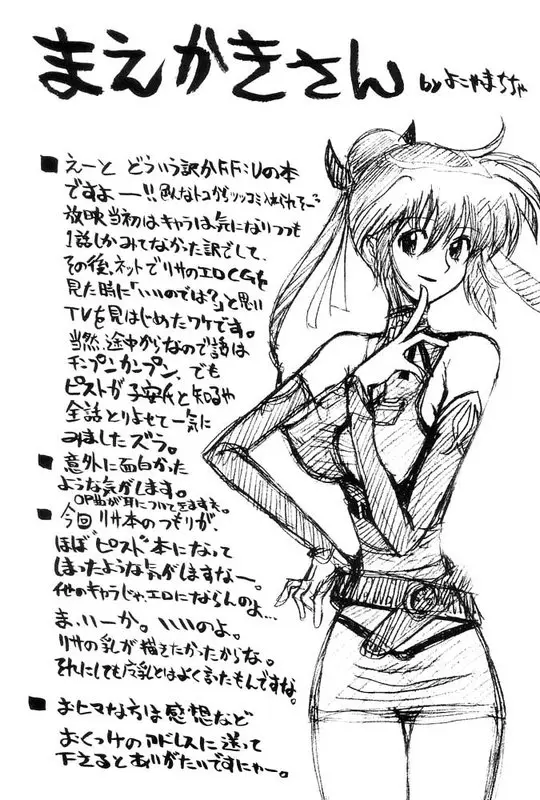 まえかきさん
by よこやまちちゃ
■えーと どういう訳かFF:Uの本
ですよー!!(みんなトコからツッコミ入れられそー)
放映当初はキャラは気になりつつも
1話しかみてなかった訳でして、
その後、ネットでリサのエロCGを
見た時に「いいのでは?」と思い
TVを見はじめたワケです。
当然、途中からなので話は
チンプンカンプン、でも
ピストが子安氏と知るや
全話とりよせて一気に
みましたズラ。
■意外に面白かった
ような気がします。
OP曲が耳についてきますネ。
■今回 リサ本のつもりが、
ほぼ"ピスト"本になって
しまったような気がしますなー。
他のキャラじゃ、エロにならんのよ…
ま、いーか。いいのよ。
リサの乳が描きたかったからな。
それにしてもとはよく言ったもんですな。
■おヒマな方は感想など
おくつけのアドレスに送って
下さるとありがたいですにゃー。